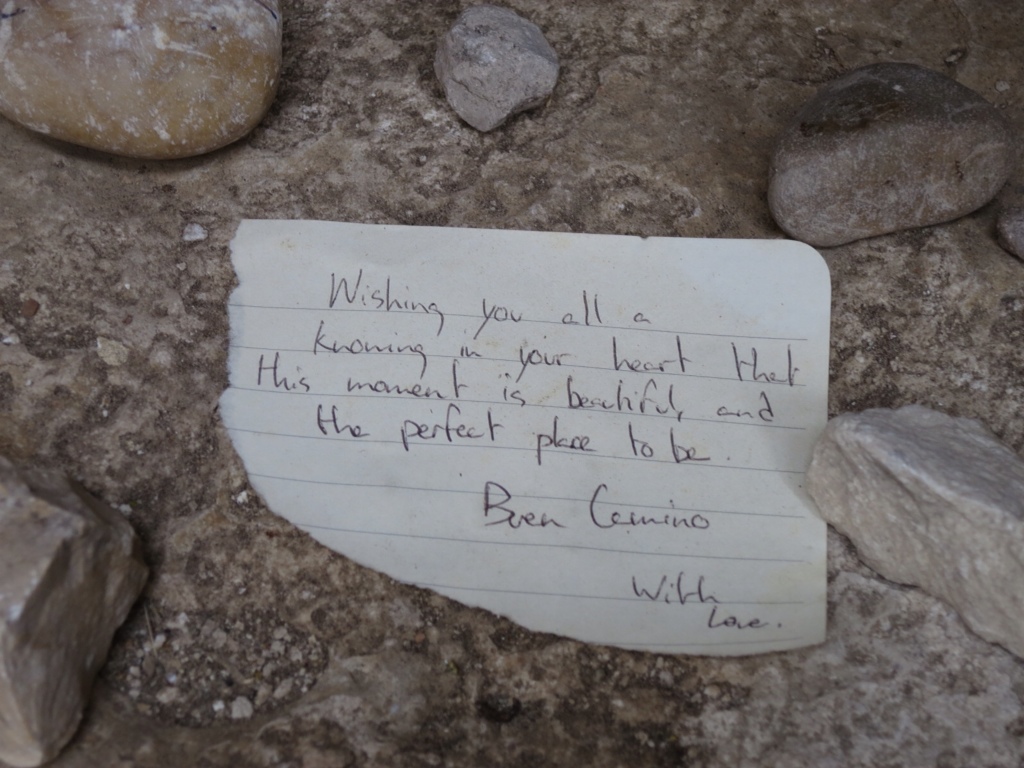 Wishing you all a
knowing in your heart that
this moment is beautiful, and
the perfect place to be.
Buen Camino
With
Love.